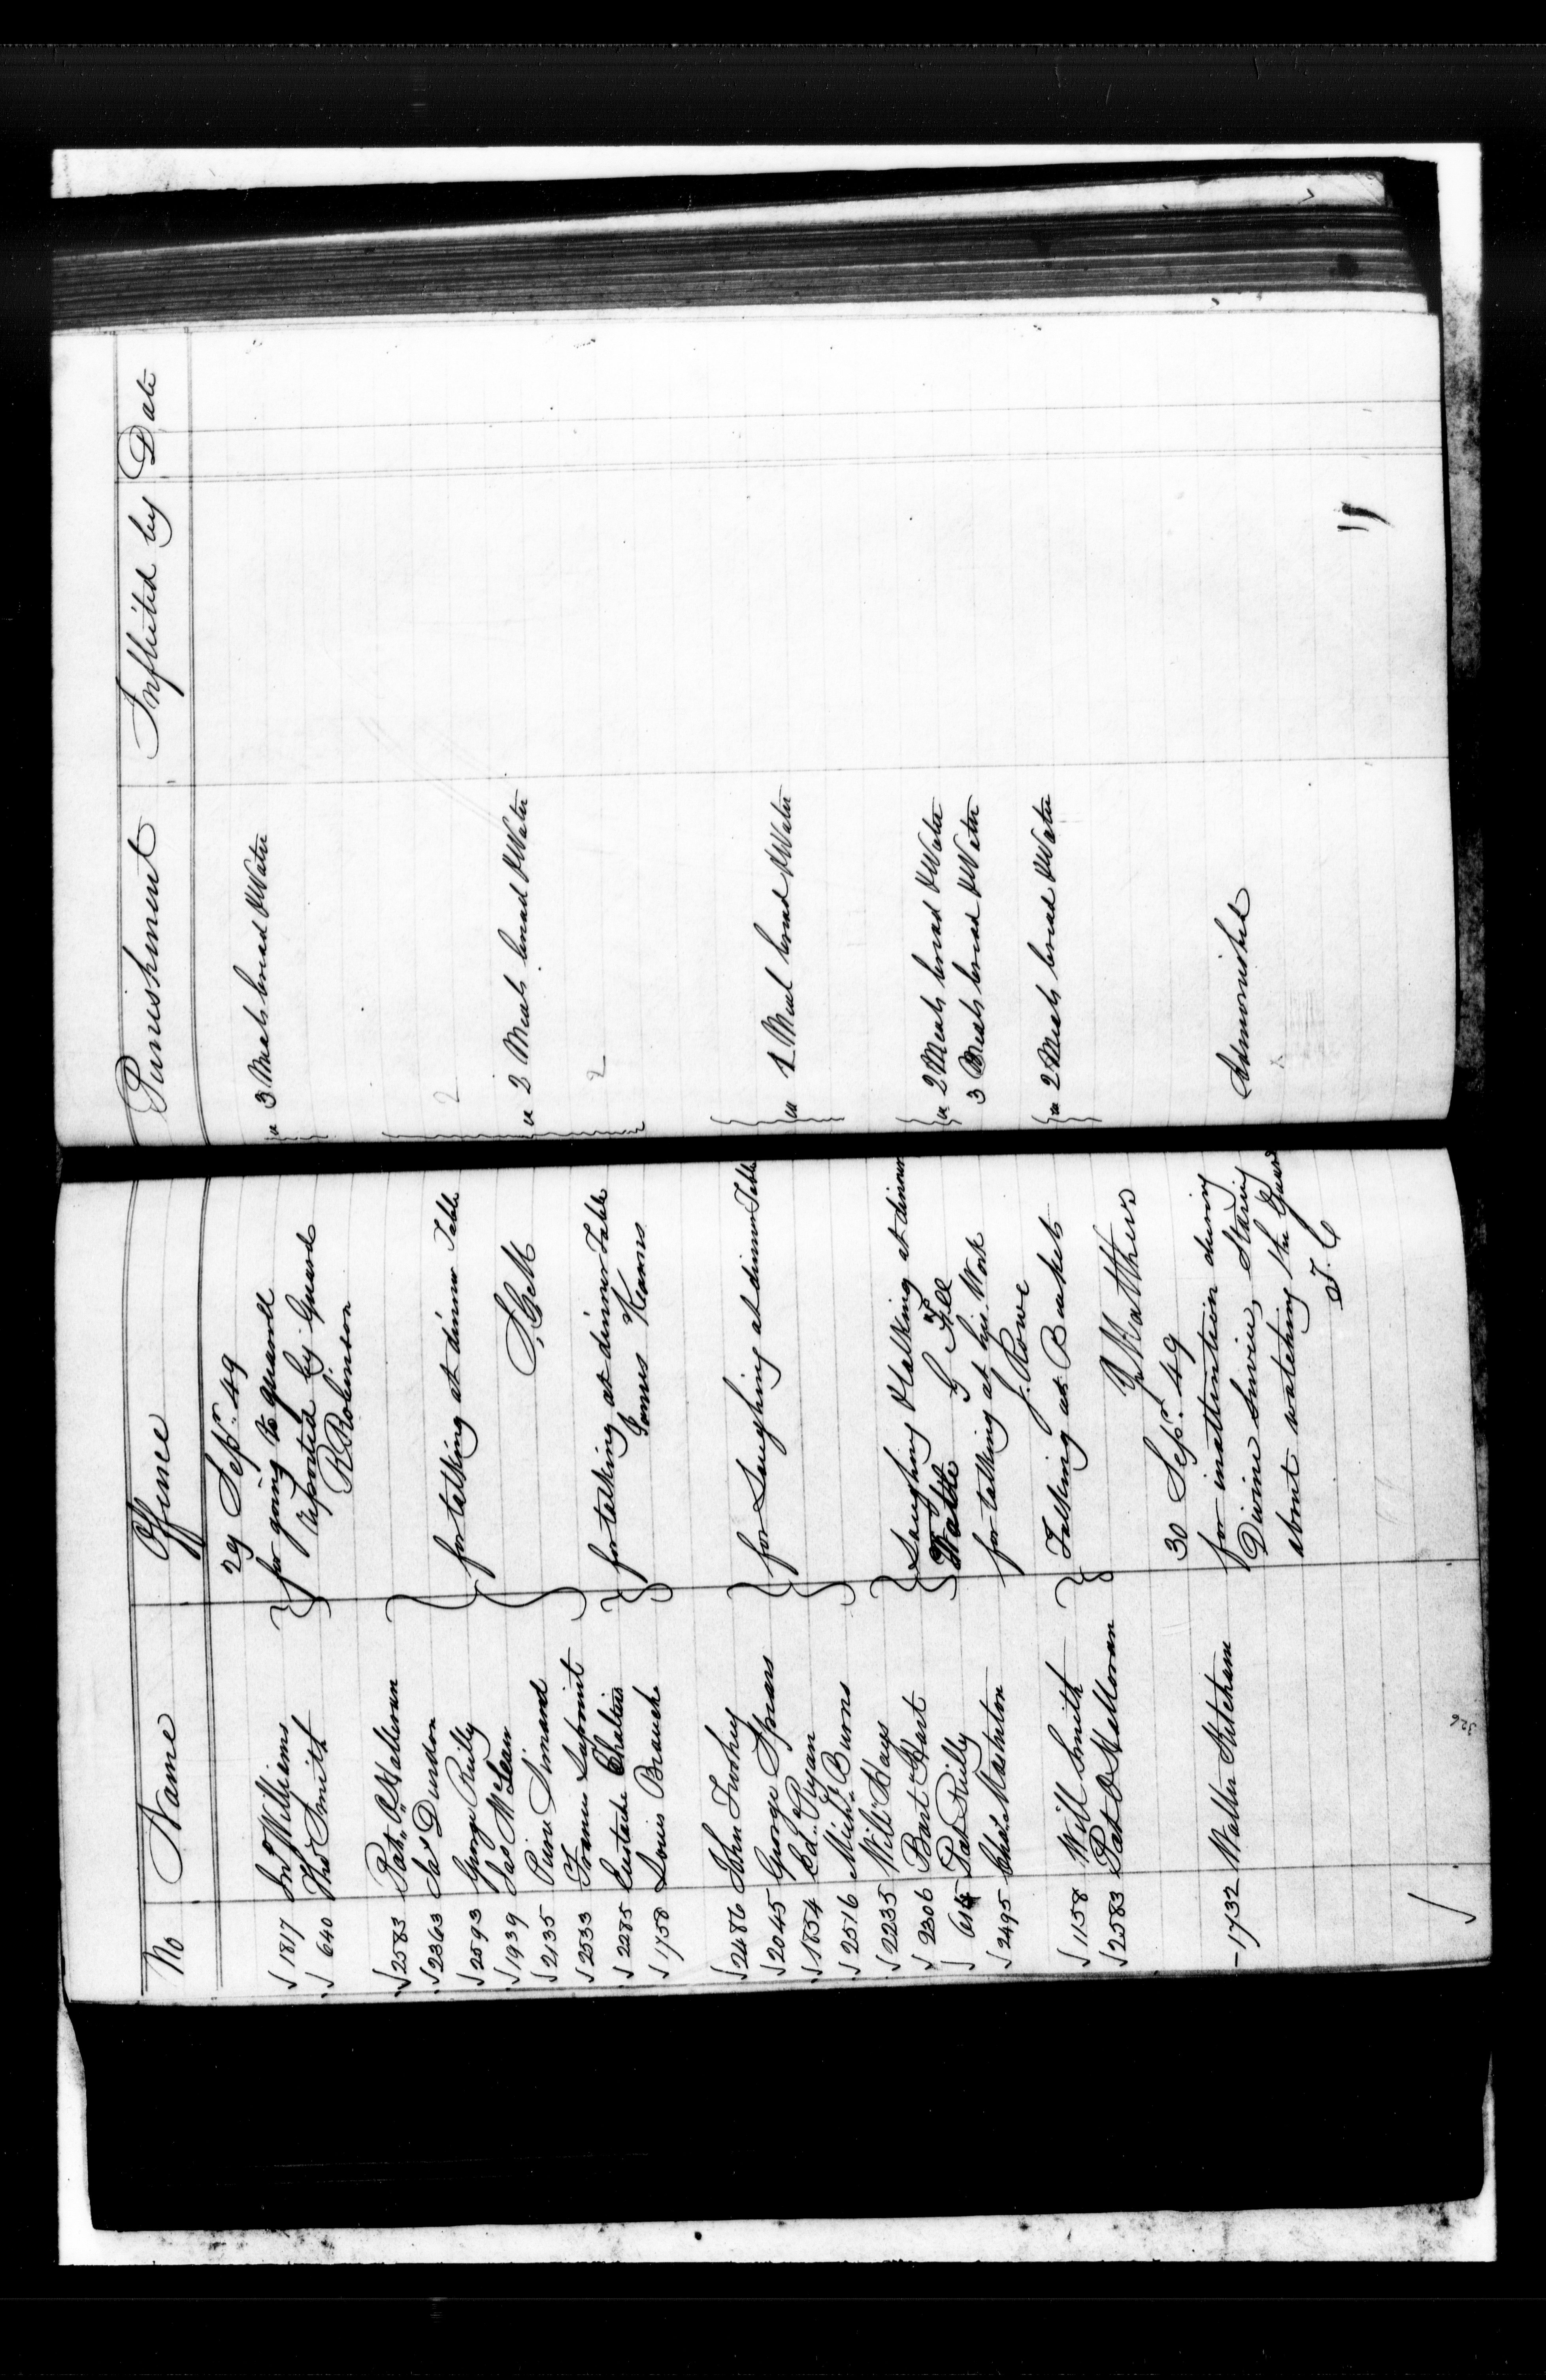 No Name Offence Punishment Inflicted by Date
29 Sepr. 49
1817 Jno Williams for going to quarrel ea 3 Meals bread & Water
640 Thos Smith reported by Guard
R Robinson
2583 Patk O'Halloran
2363 Jas Dundon for talking at dinner Table 2
2593 George Reilly
1939 Jas McLean S, McM ea 2 Meals bread & Water
2135 Pierre Simard
2533 Francis
2285 Eustache for talking at dinner Table 2
1758 Louis Branche James Kearns
2486 John Twohey
2045 George Spears for Laughing at dinner Table ea 1 Meal bread & Water
1854 Ed Ryan
2516 Michl Burns
2235 Will Hays
2306 Bart Hart Laughing & talking at dinner ea 2 Meals bread & Water
614 Pat Reilly 3 Meals bread & Water
2495 Chas Masterton for talking at his Work
J. Rowe
1158 Will Smith Talking at Bucket ea 2 Meals bread & Water
2583 Pat O Halloran
Y Matthews
30 Sepr. 49
1732 Walter for inattention during Admonished
Divine Service, Staring
about watching the Guard
T. C
326